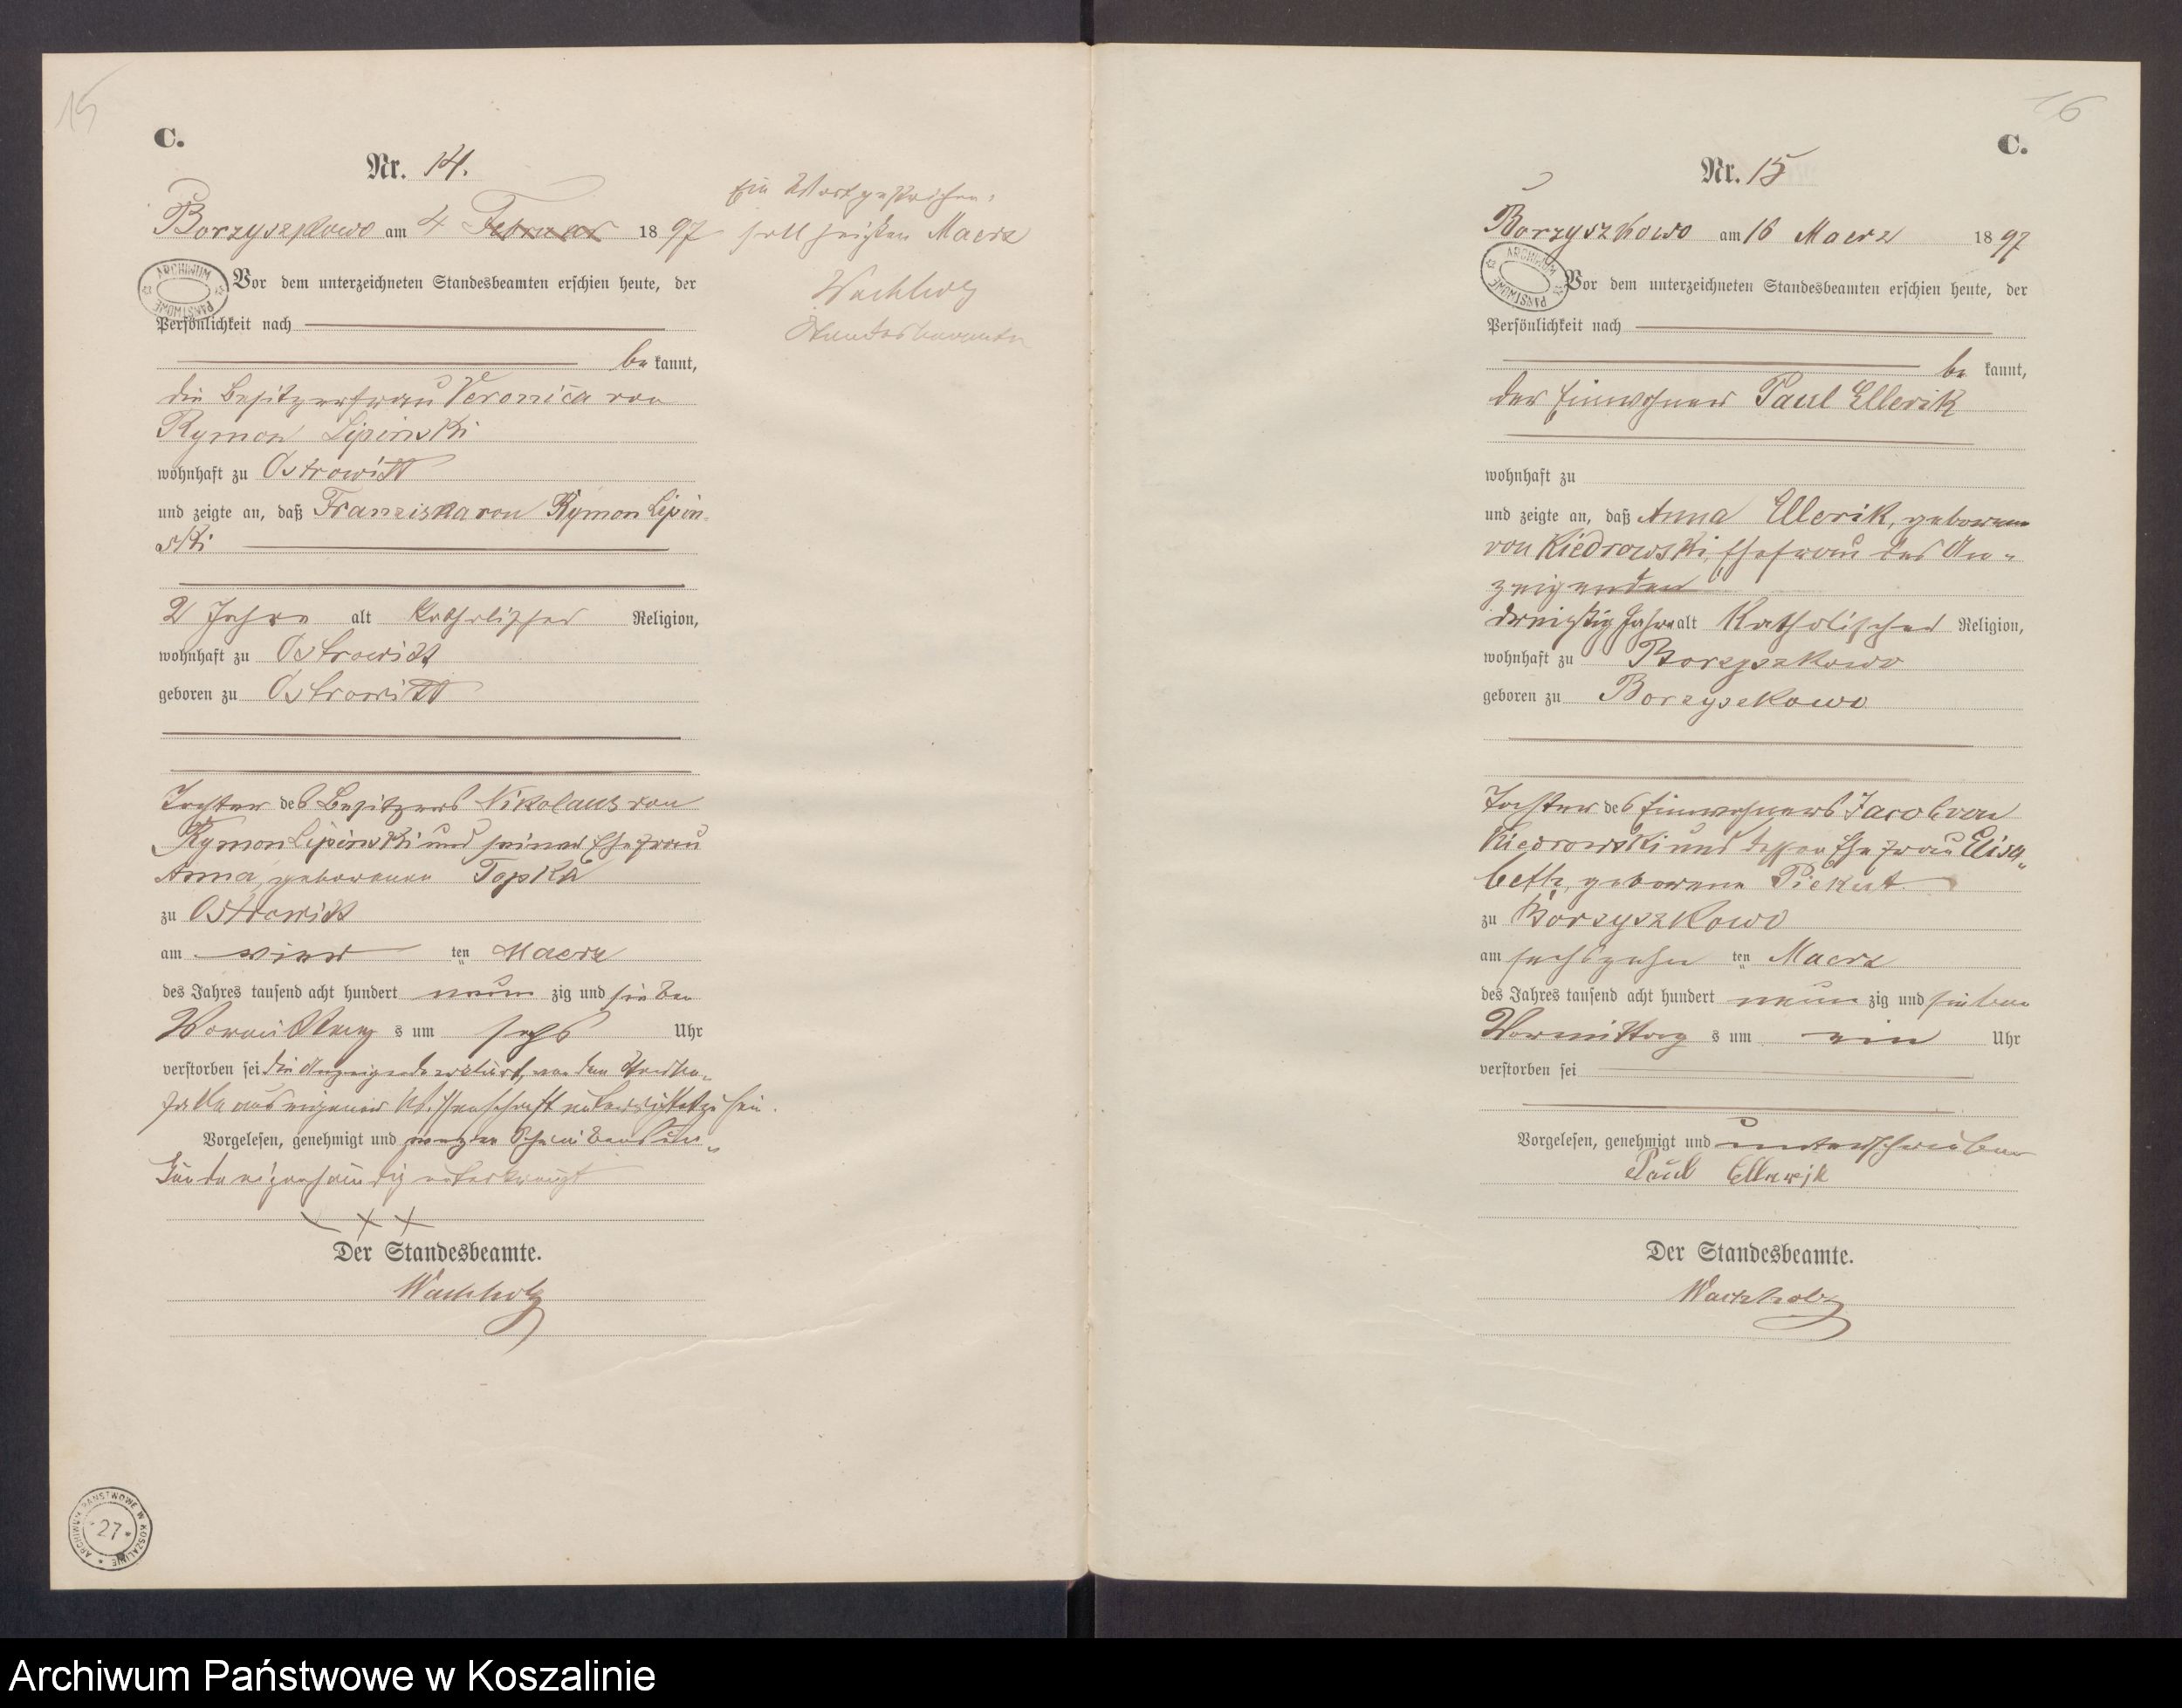 15
C.
Nr. 14.
Borzyszkowo am 4 Februar 1897
Ein Wort gestrichen,
soll heißen Maerz
Wachholz
Standesbeamter
Vor dem unterzeichneten Standesbeamten erschien heute, der
Persönlichkeit nach
be kannt,
die Besitzerfrau Veronica von
Rymon Lipinski
wohnhaft zu Ostrowitt
und zeigte an, daß Franziska von Rymon Lipin-
ski
2 Jahre alt katholischer Religion,
wohnhaft zu Ostrowitt
geboren zu Ostrowitt
Tochter des Besitzers Nikolaus von
Rymon Lipinski und seiner Ehefrau
Anna, geborenen Topka
zu Ostrowitt
am vier ten Maerz
des Jahres tausend acht hundert neun zig und sieben
Vormittag s um sechs Uhr
verstorben sei die Anzeigende erklärt, von dem Sterbe-
falle aus eigener Wissenschaft unterrichtet zu sein.
Vorgelesen, genehmigt und wegen Schreibensun-
kunde eigenhändig unterkreuzt
XXX
Der Standesbeamte.
Wachholz
ARCHIWUM PAŃSTWOWE
ARCHIWUM PAŃSTWOWE W KOSZALINIE
27
16
C.
Nr. 15
Borzyszkowo am 16 Maerz 1897
ARCHIWUM PAŃSTWOWE
Vor dem unterzeichneten Standesbeamten erschien heute, der
Persönlichkeit nach
be kannt,
der Einwohner Paul Ellerik
wohnhaft zu
und zeigte an, daß Anna Ellerik, geborene
von Kiedrowski, Ehefrau des An-
zeigenden
dreißig Jahre alt Katholischer Religion,
wohnhaft zu Borzyszkowo
geboren zu Borzyszkowo
Tochter des Einwohners Jacob von
Kiedrowski und dessen Ehefrau Elisa-
beth, geborene Piekut
zu Borzyszkowo
am sechszehn ten Maerz
des Jahres tausend acht hundert neun zig und sieben
Vormittag s um ein Uhr
verstorben sei
Vorgelesen, genehmigt und unterschrieben
Paul Ellerik
Der Standesbeamte.
Wachholz
Archiwum Państwowe w Koszalinie